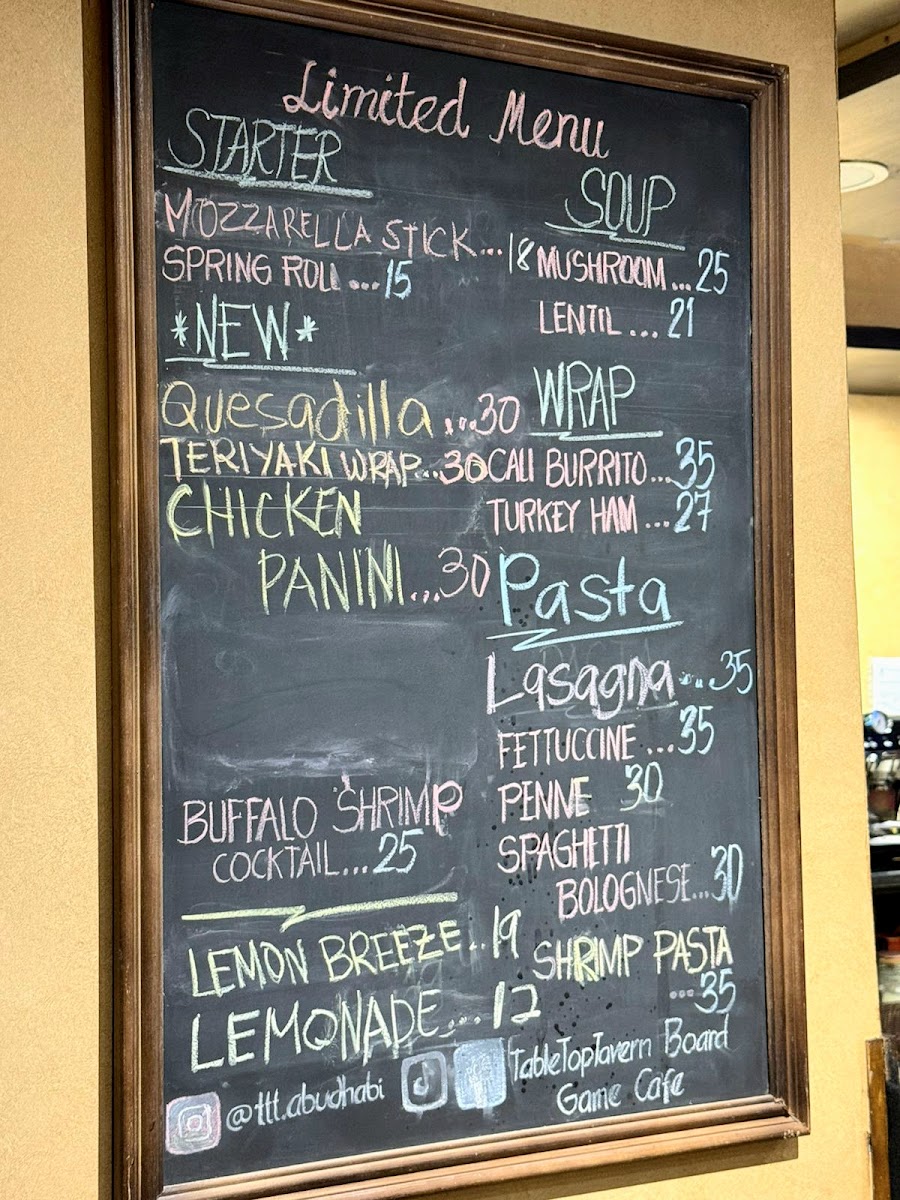 Limited Menu
STARTER
MOZZARELLA STICK...18
SPRING ROLL ...15
*NEW*
Quesadilla ...30
TERIYAKI WRAP...30
CHICKEN
PANINI...30
BUFFALO SHRIMP
COCKTAIL...25
LEMON BREEZE...19
LEMONADE....12
SOUP
MUSHROOM...25
LENTIL...21
WRAP
CALI BURRITO...35
TURKEY HAM...27
Pasta
Lasagna...35
FETTUCCINE...35
PENNE 30
SPAGHETTI
BOLOGNESE...30
SHRIMP PASTA
...35
@ttt.abudhabi
TableTopTavern Board
Game Cafe